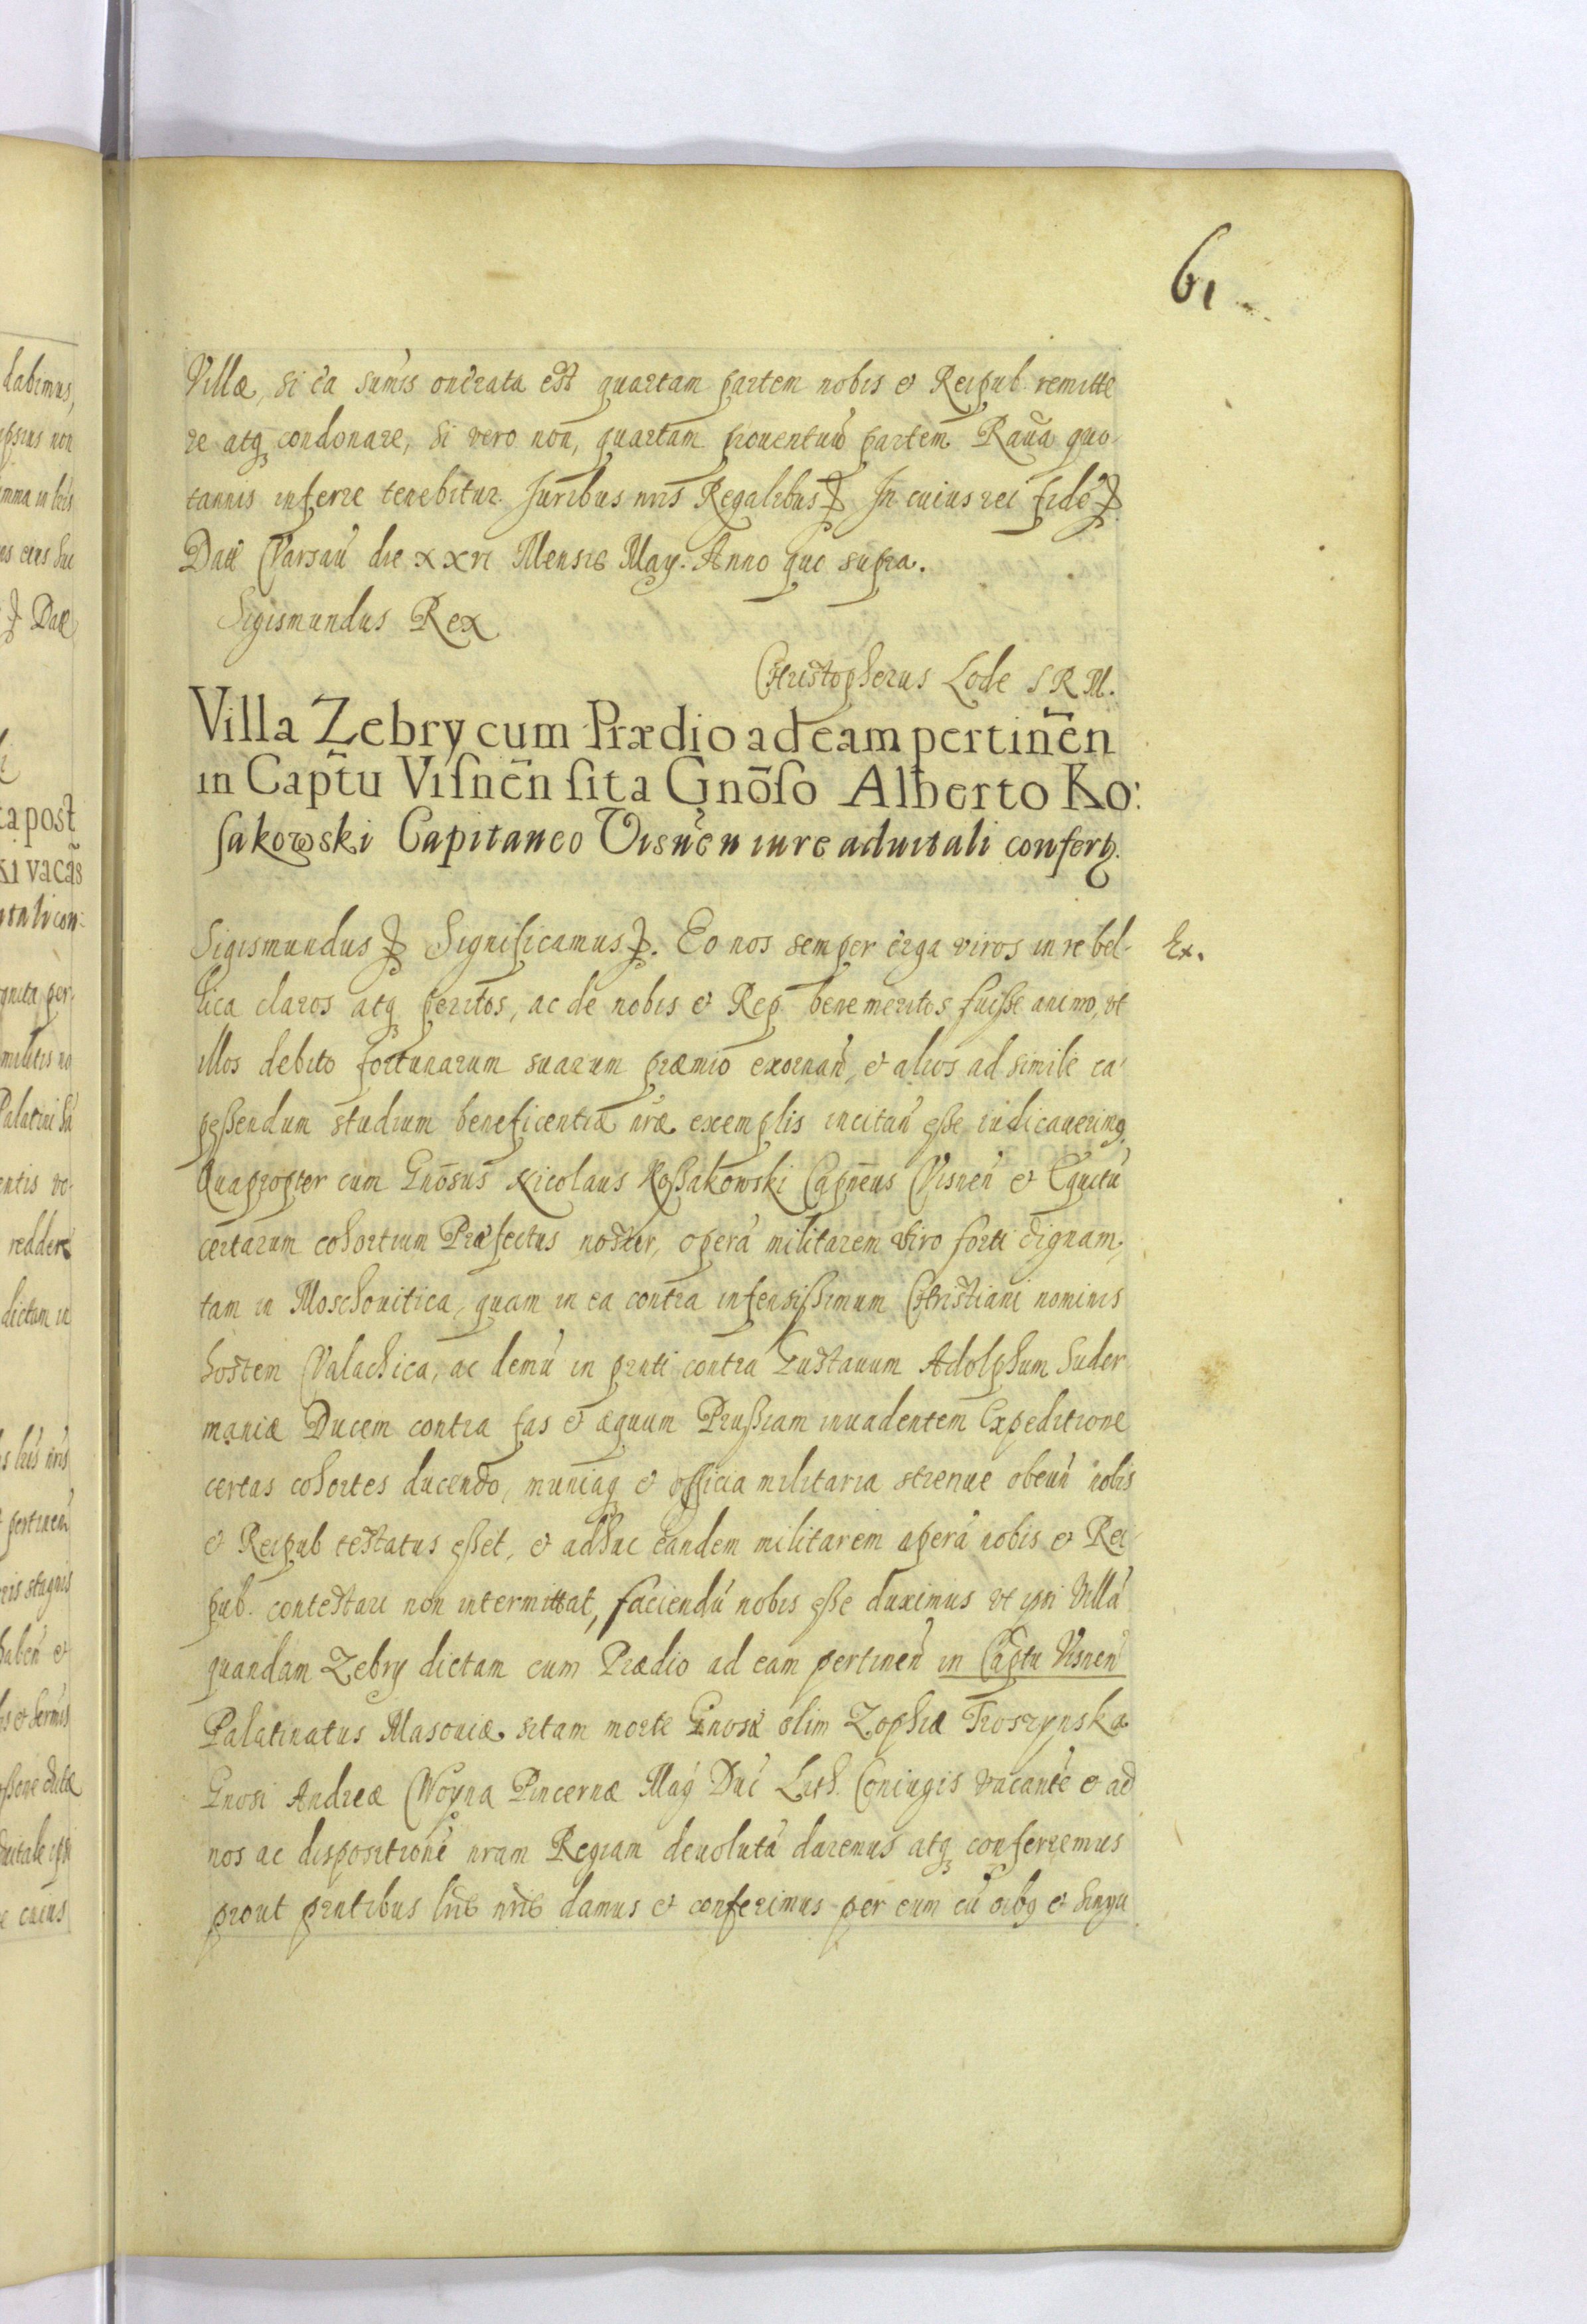 61
Villæ, si ea sum̃is onerata est quartam partem nobis et Reipub. remitte
re atq₃ condonare, si vero non, quartam prouentuũ partem Rauã quo-
tannis inferre tenebitur. Juribus nr̃is Regalibus etc. In cuius rei fidẽ etc.
Dat̃ Varsau̾ die xxvi Mensis May. Anno quo supra.
Sigismundus Rex
Christopherus Lode S R M.
Villa Zebry cum Prædio ad eam pertineñ
in Cap̃tu Viſneñ ſita Gnõſo Alberto Ko:
ſakowski Capitaneo Visneñ iure aduitali confert̃.
Sigismundus etc. Significamus etc. Eo nos semper erga viros in re bel- Ex.
lica claros atq₃ peritos, ac de nobis et Rep. bene meritos fuiſse animo, vt
illos debito fortunarum suarum præmio exornañ, et alios ad simile ca-
peſsendum studium beneficentiæ nr̃æ exemplis incitañ eſse iudicauerimꝰ.
Quapropter cum Gnõsus Nicolaus Koſsakowski Capñeus Visneñ et Equitũ
certarum cohortium Præfectus noster, operã militarem viro forti dignam,
tam in Moschouitica, quam in ea contra infensiſsimum Christiani nominis
hostem Valachica, ac demũ in pr̃nti contra Gustauum Adolphum Suder
maniæ Ducem contra fas et æquum Pruſsiam inuadentem Expeditione
certas cohortes ducendo, muniaq₃ et officia militaria strenue obeuñ nobis
et Reipub testatus eſset, et adhuc eandem militarem operã nobis et Rei-
pub. contestari non intermittat, faciendũ nobis eſse duximus vt ipsi Villã
quandam Zebry dictam cum Prædio ad eam pertineñ in Cap̃tu Visneñ
Palatinatus Masouiæ sitam morte Gnosæ olim Zophiæ Troszynska
Gnosi Andreæ Woyna Pincernæ Mag̃ Duc̃ Lith. Coniugis vacantẽ et ad
nos ac dispositionẽ nram Regiam deuolutã daremus atq₃ conferremus
prout pr̃ntibus lr̃is nr̃is damus et conferimus per eum cũ oĩbꝰ et singu